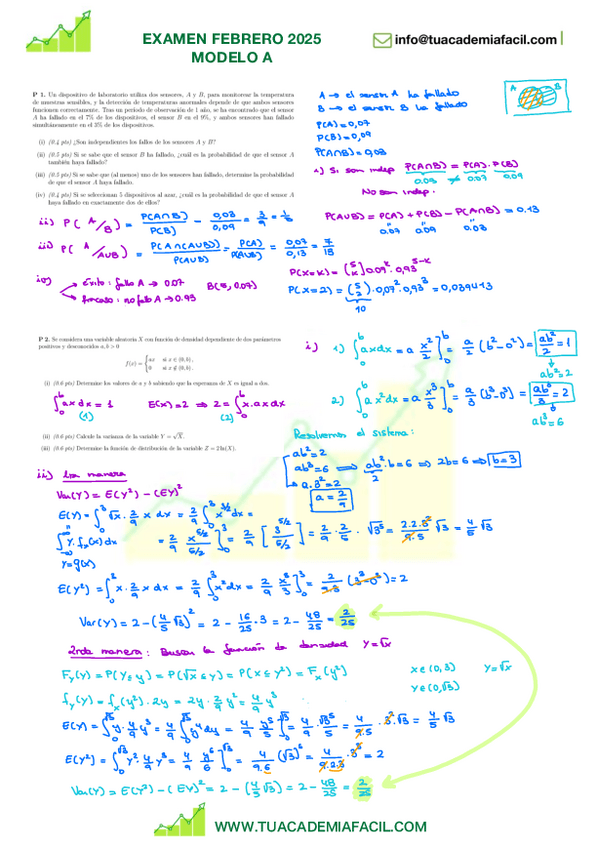 EXAMEN FEBRERO 2025
MODELO A
info@tuacademiafacil.com
P 1. Un dispositivo de laboratorio utiliza dos sensores, A y B, para monitorear la temperatura
de muestras sensibles, y la detección de temperaturas anormales depende de que ambos sensores
funcionen correctamente. Tras un periodo de observación de 1 año, se ha encontrado que el sensor
A ha fallado en el 7% de los dispositivos, el sensor B en el 9%, y ambos sensores han fallado
simultáneamente en el 3% de los dispositivos.
(i) (0.4 pts) ¿Son independientes los fallos de los sensores A y B?
(ii) (0.5 pts) Si se sabe que el sensor B ha fallado, ¿cuál es la probabilidad de que el sensor A
también haya fallado?
(iii) (0.5 pts) Si se sabe que (al menos) uno de los sensores han fallado, determina la probabilidad
de que el sensor A haya fallado.
(iv) (0.4 pts) Si se seleccionan 5 dispositivos al azar, ¿cuál es la probabilidad de que el sensor A
haya fallado en exactamente dos de ellos?
A → el sensor A ha fallado
B → el sensor B ha fallado
A B
P(A)=0,07
P(B)=0,09
P(A∩B)=0,03
i) Si son indep P(A∩B) = P(A)·P(B)
0.03 ≠ 0.07 0.09
No son indep.
ii) P(A/B) = P(A∩B)/P(B) = 0,03/0,09 = 3/9 = 1/3
P(A∪B) = P(A) + P(B) - P(A∩B) = 0.13
0.07 0.09 0.03
iii) P(A/A∪B) = P(A∩(A∪B))/P(A∪B) = P(A)/P(A∪B) = 0,07/0,13 = 7/13
iv) Éxito: falla A → 0.07
fracaso: no falla A → 0.93
B(5, 0,07)
P(X=2) = (5 2) · 0,07² · 0,93³ = 0,039413
10
P 2. Se considera una variable aleatoria X con función de densidad dependiente de dos parámetros
positivos y desconocidos a, b > 0
f(x) = { ax si x ∈ (0, b),
0 si x ∉ (0, b).
(i) (0.6 pts) Determina los valores de a y b sabiendo que la esperanza de X es igual a dos.
∫₀ᵇ ax dx = 1 E(X)=2 ⇒ 2 = ∫₀ᵇ x·ax dx
(1) (2)
(ii) (0.6 pts) Calcule la varianza de la variable Y = √X.
(iii) (0.6 pts) Determine la función de distribución de la variable Z = 2 ln(X).
i) 1) ∫₀ᵇ ax dx = a x²/2 ]₀ᵇ = a/2 (b²-0²) = ab²/2 = 1
ab² = 2
2) ∫₀ᵇ ax² dx = a x³/3 ]₀ᵇ = a/3 (b³-0³) = ab³/3 = 2
ab³ = 6
Resolvemos el sistema:
ab² = 2
ab³ = 6 ⇒ ab²·b = 6 ⇒ 2b = 6 ⇒ b = 3
2
a·3² = 2
a = 2/9
ii) 1ra manera
Var(Y) = E(Y²) - (EY)²
E(Y) = ∫₀³ √x · 2/9 x dx = 2/9 ∫₀³ x^(3/2) dx =
∫ y·fₓ(x) dx = 2/9 x^(5/2)/(5/2) ]₀³ = 2/9 [3^(5/2)/(5/2)] = 2/9 · 2/5 · √3⁵ = 2·2·3²/9·5 √3 = 4/5 √3
Y = g(x)
E(Y²) = ∫₀² x · 2/9 x dx = 2/9 ∫₀³ x² dx = 2/9 x³/3 ]₀³ = 2/9·3 (3³-0³) = 2
Var(Y) = 2 - (4/5 √3)² = 2 - 16/25 · 3 = 2 - 48/25 = 2/25
2nda manera: Buscar la función de densidad Y=√x
F_Y(y) = P(Y≤y) = P(√x ≤ y) = P(X ≤ y²) = Fₓ(y²)
x∈(0,3) Y=√x
y∈(0,√3)
f_Y(y) = fₓ(y²) · 2y = 2y · 2/9 y² = 4/9 y³
E(Y) = ∫₀^√3 y · 4/9 y³ = 4/9 ∫₀^√3 y⁴ dy = 4/9 y⁵/5 ]₀^√3 = 4/9 · √3⁵/5 = 4/9·5 · 3² · √3 = 4/5 √3
E(Y²) = ∫₀^√3 y² · 4/9 y³ = 4/9 y⁶/6 ]₀^√3 = 4/9·6 (√3)⁶ = 4/9·2·3 · 3³ = 2
Var(Y) = E(Y²) - (EY)² = 2 - (4/5 √3)² = 2 - 48/25 = 2/25
WWW.TUACADEMIAFACIL.COM